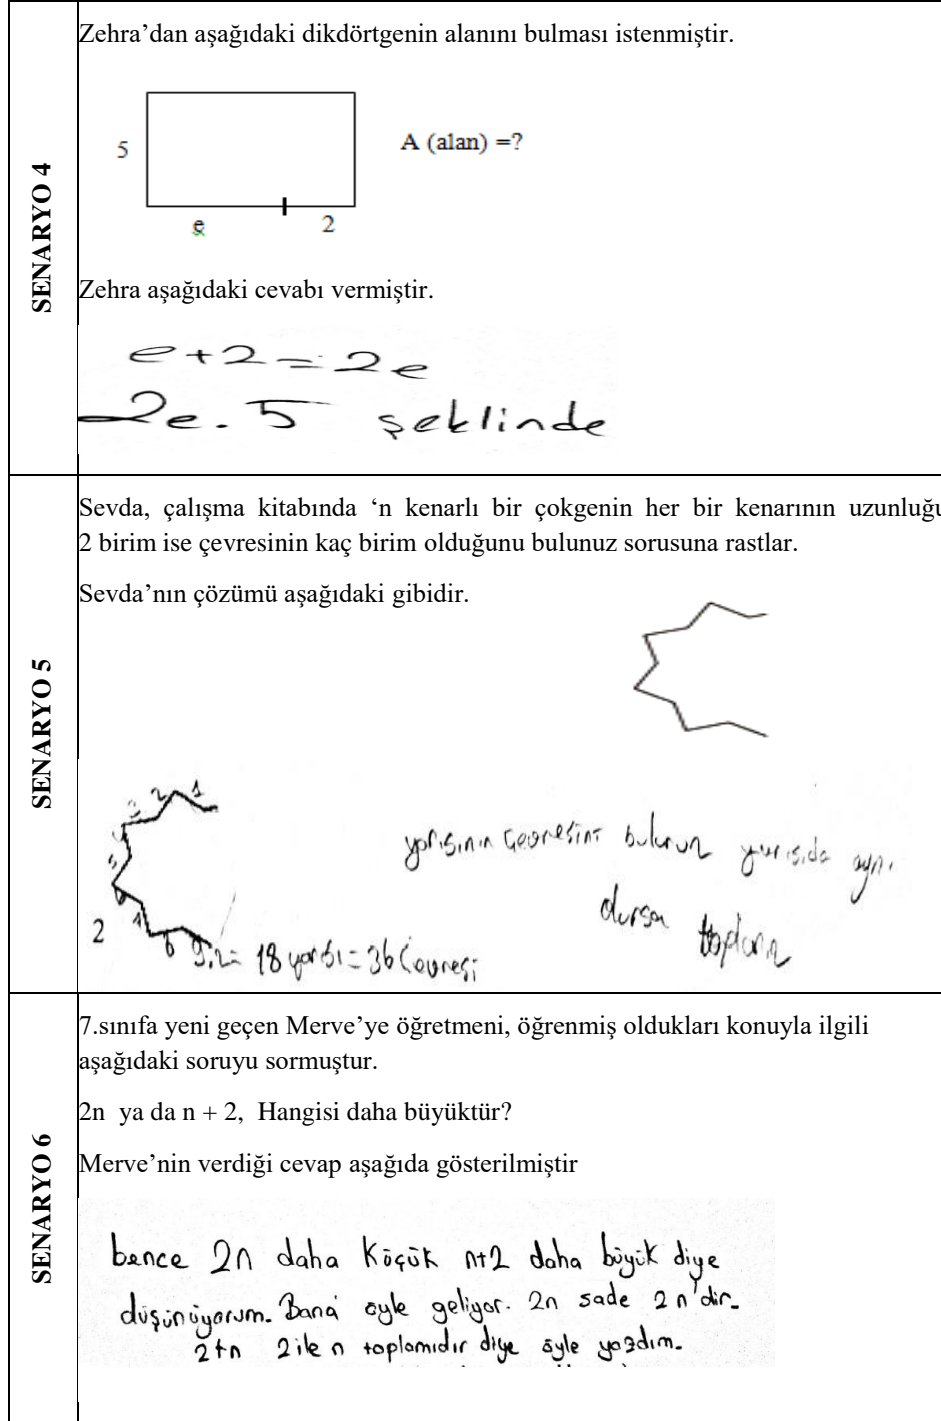 SENARYO 4
Zehra’dan aşağıdaki dikdörtgenin alanını bulması istenmiştir.
5
A (alan) =?
e
2
Zehra aşağıdaki cevabı vermiştir.
e+2=2e
2e.5 şeklinde
SENARYO 5
Sevda, çalışma kitabında ‘n kenarlı bir çokgenin her bir kenarının uzunluğu
2 birim ise çevresinin kaç birim olduğunu bulunuz sorusuna rastlar.
Sevda’nın çözümü aşağıdaki gibidir.
3 2 1
2
yarısının çevresini bulurum yarısıda aynı
olursa toplarız
9.2= 18 yarısı=36 Çevresi
SENARYO 6
7.sınıfa yeni geçen Merve’ye öğretmeni, öğrenmiş oldukları konuyla ilgili
aşağıdaki soruyu sormuştur.
2n ya da n + 2, Hangisi daha büyüktür?
Merve’nin verdiği cevap aşağıda gösterilmiştir
bence 2n daha küçük n+2 daha büyük diye
düşünüyorum. Bana öyle geliyor. 2n sade 2n'dir.
2+n 2 ile n toplamıdır diye öyle yazdım.